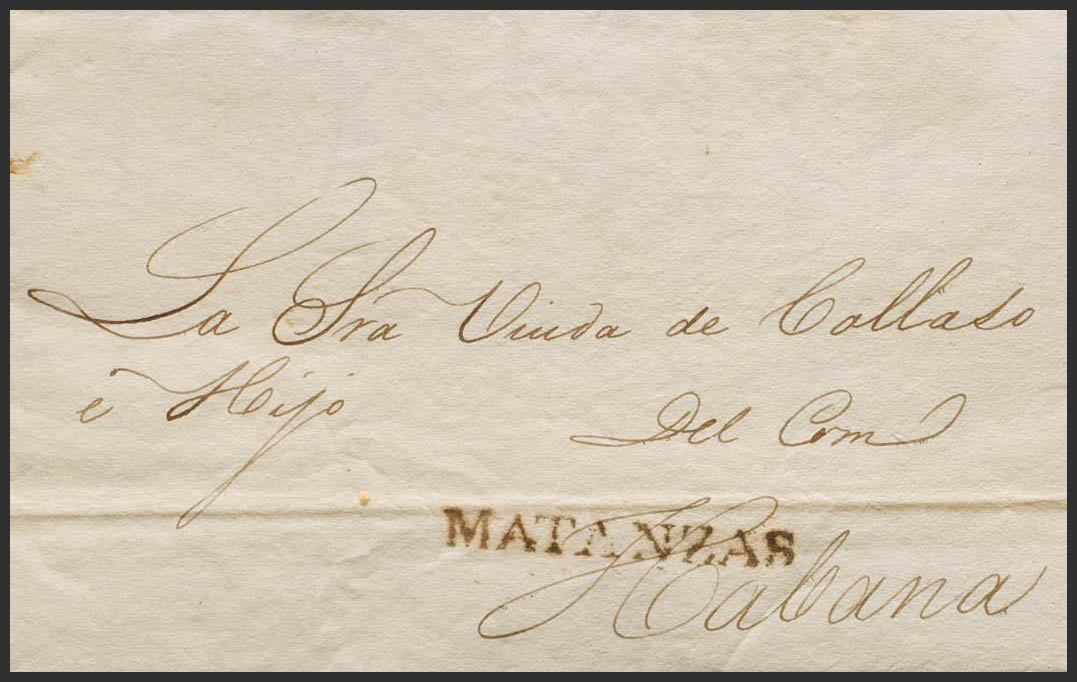 La Sra Viuda de Collaso
é Hijo
Del Com
MATANZAS
Habana